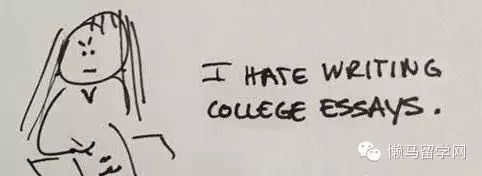 I HATE WRITING
COLLEGE ESSAYS.
懒马留学网